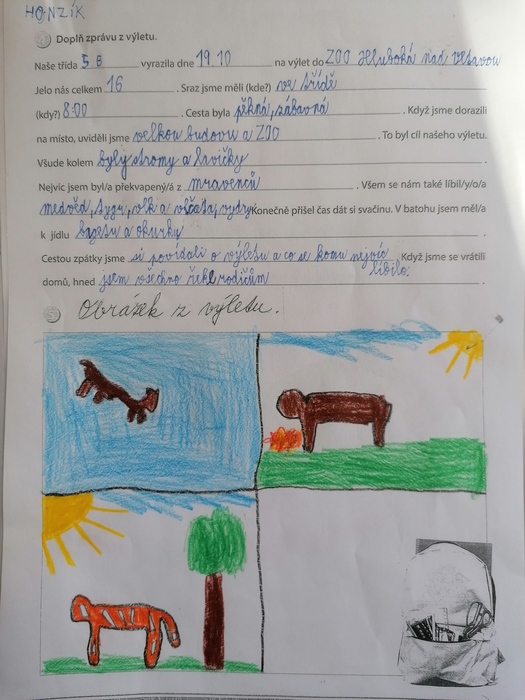 HONZÍK
Doplň zprávu z výletu.
Naše třída 5 B vyrazila dne 19.10 na výlet do ZOO Hluboká nad Vltavou
Jelo nás celkem 16. Sraz jsme měli (kde?) ve třídě
(kdy?) 8:00. Cesta byla pěkná, zábavná. Když jsme dorazili
na místo, uviděli jsme velkou budovu a ZOO. To byl cíl našeho výletu.
Všude kolem byly stromy a lavičky.
Nejvíc jsem byl/a překvapený/á z mravenců. Všem se nám také líbil/y/o/a
medvěd, tygr, vlk a vlčata, vydry Konečně přišel čas dát si svačinu. V batohu jsem měl/a
k jídlu bagetu a okurky.
Cestou zpátky jsme si povídali o výletu a co se komu nejvíc líbilo. Když jsme se vrátili
domů, hned jsem všechno řekl rodičům
Obrázek z výletu.